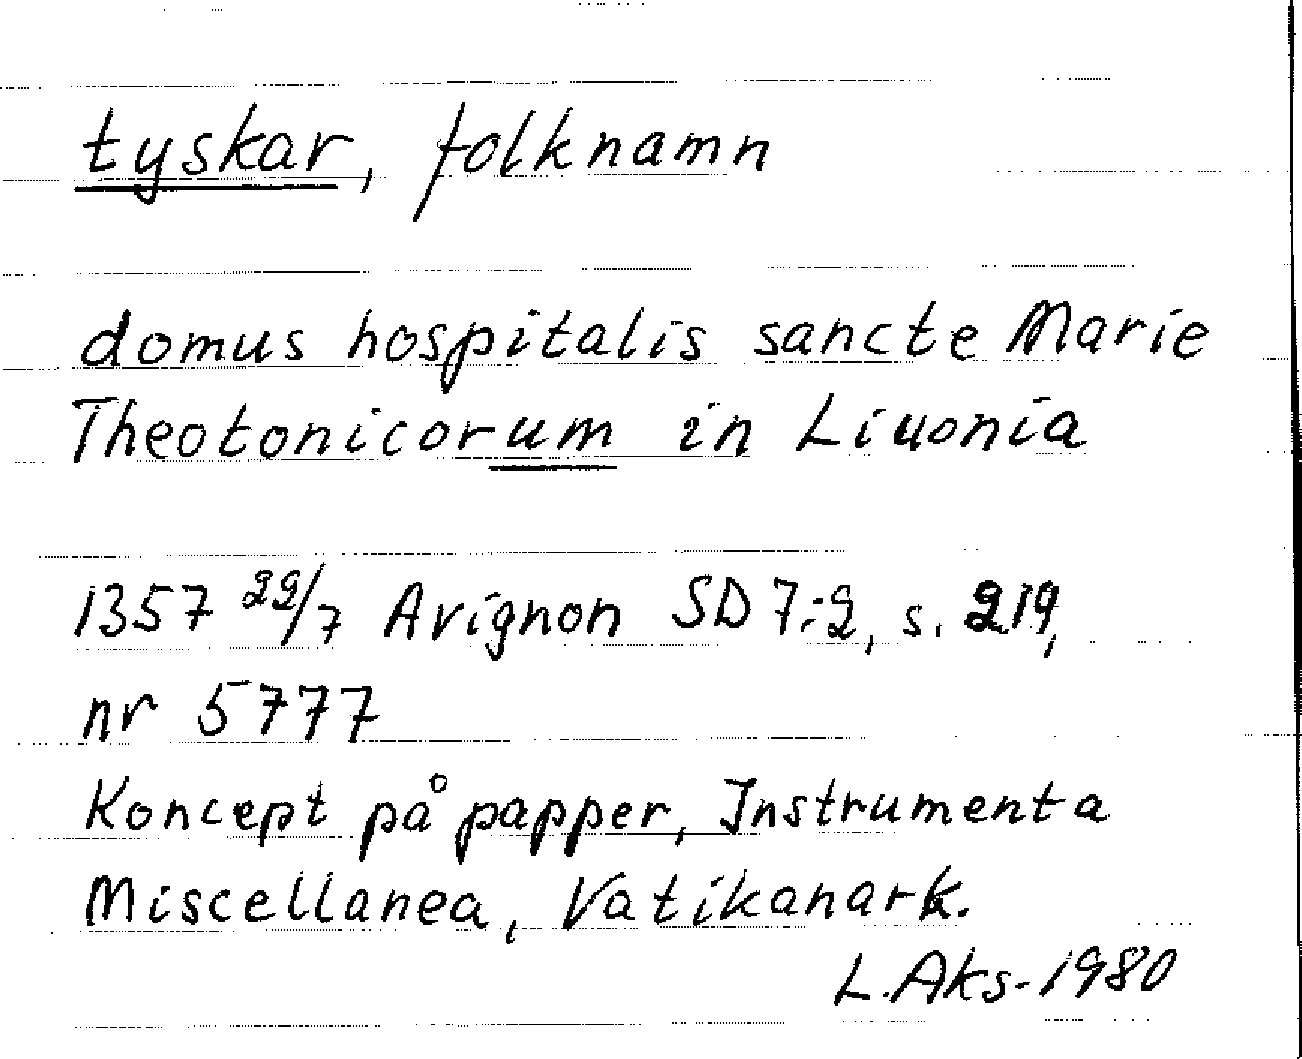 tyskar, folknamn
domus hospitalis sancte Marie
Theotonicorum in Liuonia
1357 22/7 Avignon SD 7:2, s. 219,
nr 5777
Koncept på papper, Instrumenta
Miscellanea, Vatikanark.
L.Aks-1980